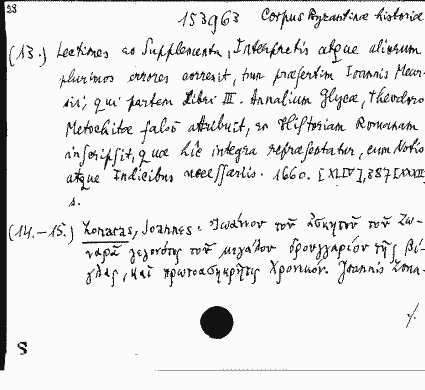 98
153963 Corpus Byzantinae historiae
(13.) Lectiones ac Supplementa, Interpretis atque aliorum
plurimos errores correxit, tum praesertim Ioannis Meur-
sii, qui partem Libri III. Annalium Glycae, Theodoro
Metochitae falso attribuit, ac Historiam Romanam
inscripsit, quae hic integra repraesentatur, cum Notis
atque Indicibus necessariis. 1660. [XLIV], 387 [XXXIII]
s.
(14.-15.) Zonaras, Joannes. Ἰωάννου τοῦ ἀσκητοῦ τοῦ Ζω-
ναρᾶ γεγονότος τοῦ μεγάλου δρουγγαρίου τῆς βί-
γλας, καὶ πρωτοασηκρῆτις Χρονικόν. Joannis Zona-
./.
S